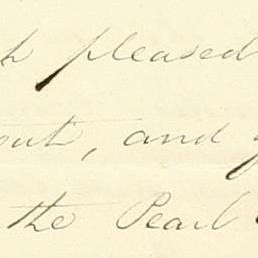 pleased
out, and
the Pearl